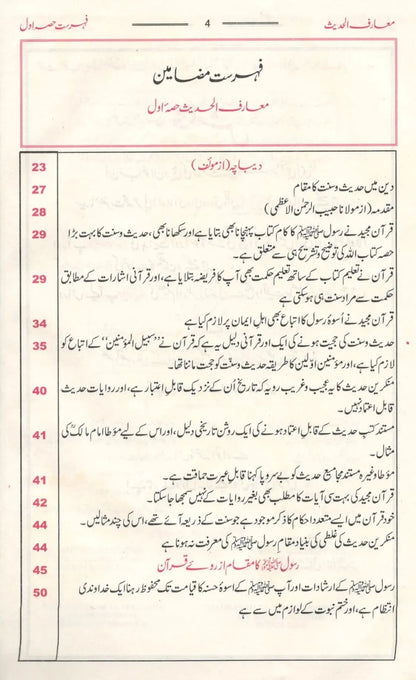 معارف الحدیث
4
فہرست حصہ اول
فہرست مضامین
معارف الحدیث حصۂ اول
دیباچہ (از مؤلف) 23
دین میں حدیث و سنت کا مقام 27
مقدمہ (از مولانا حبیب الرحمٰن الاعظمی) 28
قرآن مجید نے رسول ﷺ کا کام کتاب پہنچانا بھی بتایا ہے اور سکھانا بھی، حدیث و سنت کا بہت بڑا 29
حصہ کتاب اللہ کی توضیح و تشریح ہی سے متعلق ہے۔
قرآن نے تعلیم کتاب کے ساتھ تعلیم حکمت بھی آپ کا فریضہ بتلایا ہے، اور قرآنی اشارات کے مطابق 29
حکمت سے مراد سنت ہی ہو سکتی ہے
قرآن مجید نے اسوۂ رسول کا اتباع بھی اہل ایمان پر لازم کیا ہے 34
حدیث و سنت کی حجیت ہونے کی ایک اور قرآنی دلیل یہ ہے کہ قرآن نے ”سبیل المؤمنین“ کے اتباع کو 35
لازم کیا ہے، اور مؤمنین اوّلین کا طریقہ حدیث و سنّت کو حجت ماننا تھا۔
منکرین حدیث کا یہ عجیب و غریب رویہ کہ تاریخ اُن کے نزدیک قابل اعتبار ہے، اور روایات حدیث 40
قابل اعتماد نہیں۔
مستند کتب حدیث کے قابل اعتماد ہونے کی ایک روشن تاریخی دلیل، اور اس کے لیے مؤطا امام مالکؒ کی 41
مثال۔
مؤطا وغیرہ مستند مجامیع حدیث کو بے سروپا کہنا قابل عبرت حماقت ہے۔ 41
قرآن مجید کی بہت سی آیات کا مطلب بھی بغیر روایات کے نہیں سمجھا جا سکتا۔ 42
خود قرآن میں ایسے متعدد احکام کا ذکر موجود ہے جو سنت کے ذریعہ آئے تھے، اس کی چند مثالیں۔ 44
منکرین حدیث کی غلطی کی بنیاد مقام رسول ﷺ کی معرفت نہ ہونا ہے 44
رسول ﷺ کا مقام از روئے قرآن 45
رسول ﷺ کے ارشادات اور آپ ﷺ کے اسوۂ حسنہ کا قیامت تک محفوظ رہنا ایک خداوندی 50
انتظام ہے، اور ختم نبوت کے لوازم میں سے ہے